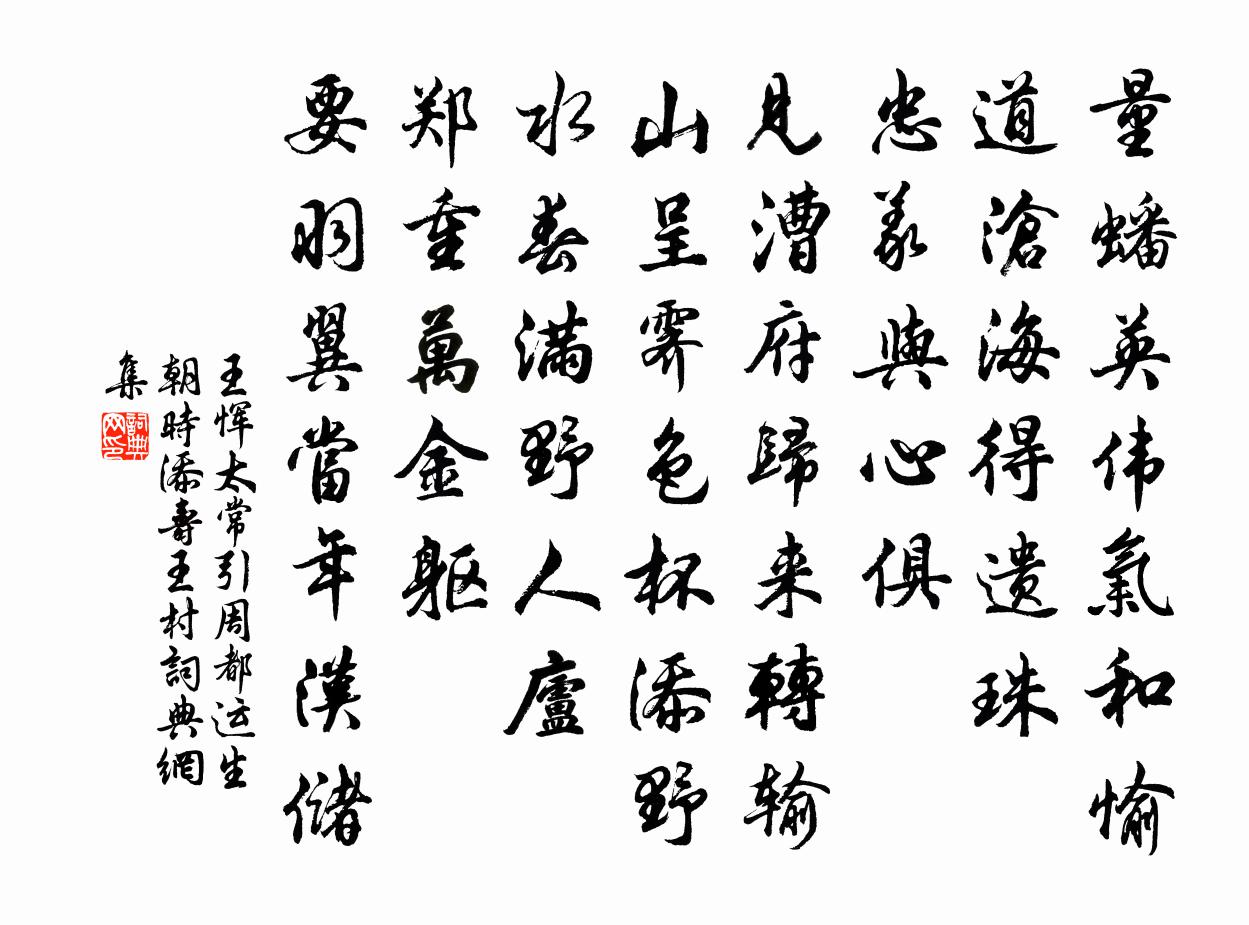 量蟠英伟氣和愉
道滄海得遗珠
忠義與心俱
見漕府歸来轉输
山呈霽色杯添野
水春满野人廬
郑重萬金躯
要羽翼當年漢儲
王恽太常引周都运生
朝時添壽王村詞典網
集
詞典网印